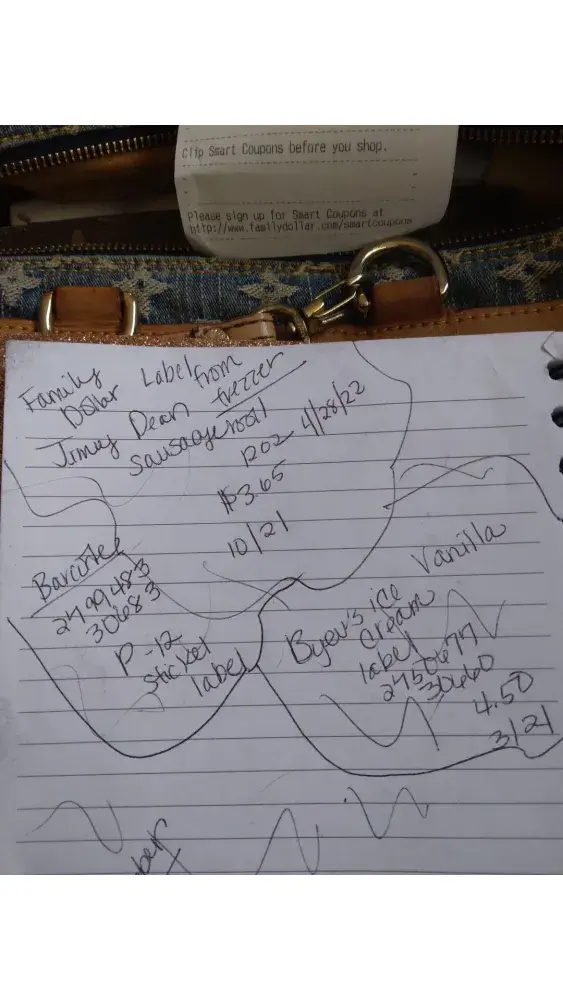 Clip Smart Coupons before you shop.
Please sign up for Smart Coupons at
http://www.familydollar.com/smartcoupons
Family
Dollar Label from
frezzer
Jimmy Dean
Sausage roll
12oz 4/28/22
$3.65
10/21
Barcode
2799483
30683
P-12
sticker
label
Vanilla
Byer's ice
cream
label
2750677
30660
4.50
3/21